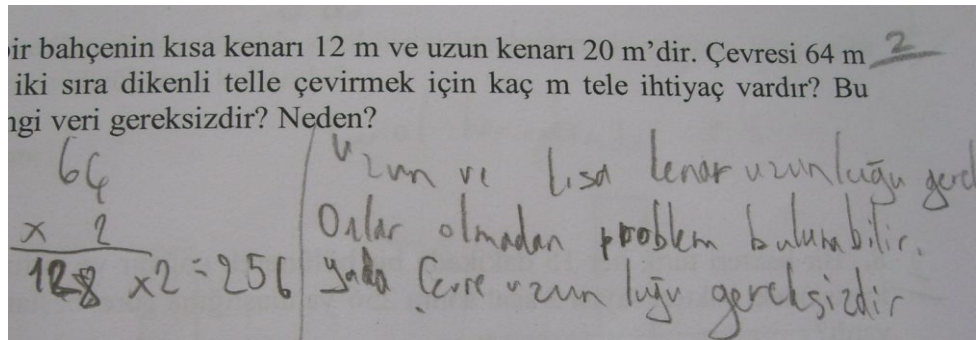 ir bahçenin kısa kenarı 12 m ve uzun kenarı 20 m'dir. Çevresi 64 m 2
iki sıra dikenli telle çevirmek için kaç m tele ihtiyaç vardır? Bu
ngi veri gereksizdir? Neden?
64
x 2
128 x2 = 256
Uzun ve kısa kenar uzunluğu gerek
Onlar olmadan problem bulunabilir.
yada Çevre uzunluğu gereksizdir